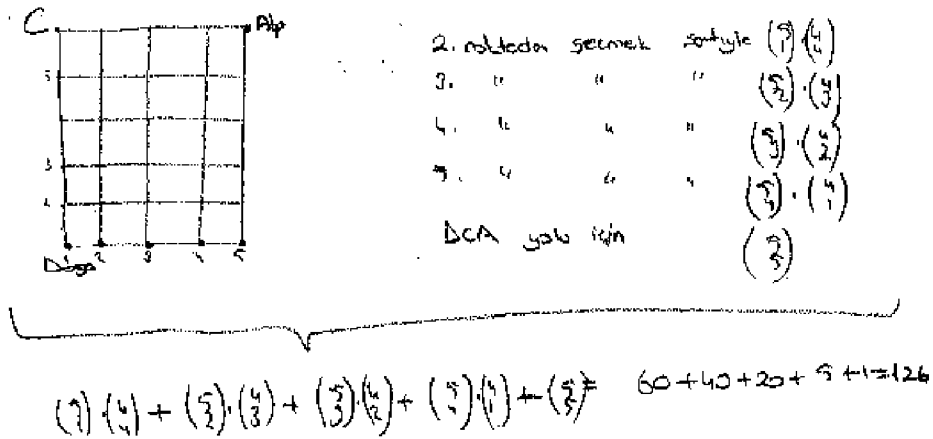 C Alp
5
3
2
1 2 3 4 5
2. noktadan geçmek şartıyle (5 1).(4 4)
3. " " " (5 2).(4 3)
4. " " " (5 3).(4 2)
5. " " " (5 4).(4 1)
DCA yolu için (5 5)
(5 1).(4 4) + (5 2).(4 3) + (5 3).(4 2) + (5 4).(4 1) + (5 5) = 60 + 40 + 20 + 5 + 1 = 126